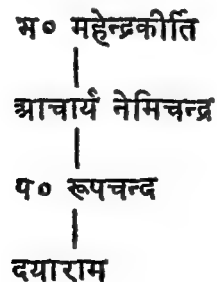 भ० महेन्द्रकीर्ति
आचार्य नेमिचन्द्र
प० रूपचन्द
दयाराम